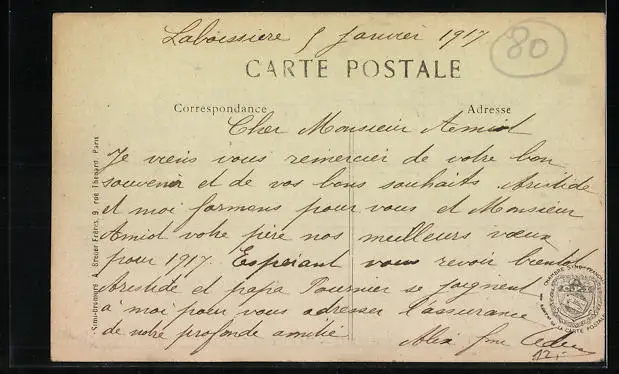 Laboissiere 5 Janvier 1917
80
CARTE POSTALE
Correspondance
Adresse
Cher Monsieur Amiot
Je viens vous remercier de votre bon
souvenir et de vos bons souhaits. Aristide
et moi formons pour vous et Monsieur
Amiot votre père nos meilleurs vœux
pour 1917. Espérant vous revoir bientot
Aristide et papa Fournier se joignent
à moi pour vous adresser l'assurance
de votre profonde amitié
Alix
12,-
Semi-bromure A. Breger Frères, 9, rue Thénard, Paris
CHAMBRE SYND. FRANÇAISE
DE LA CARTE POSTALE